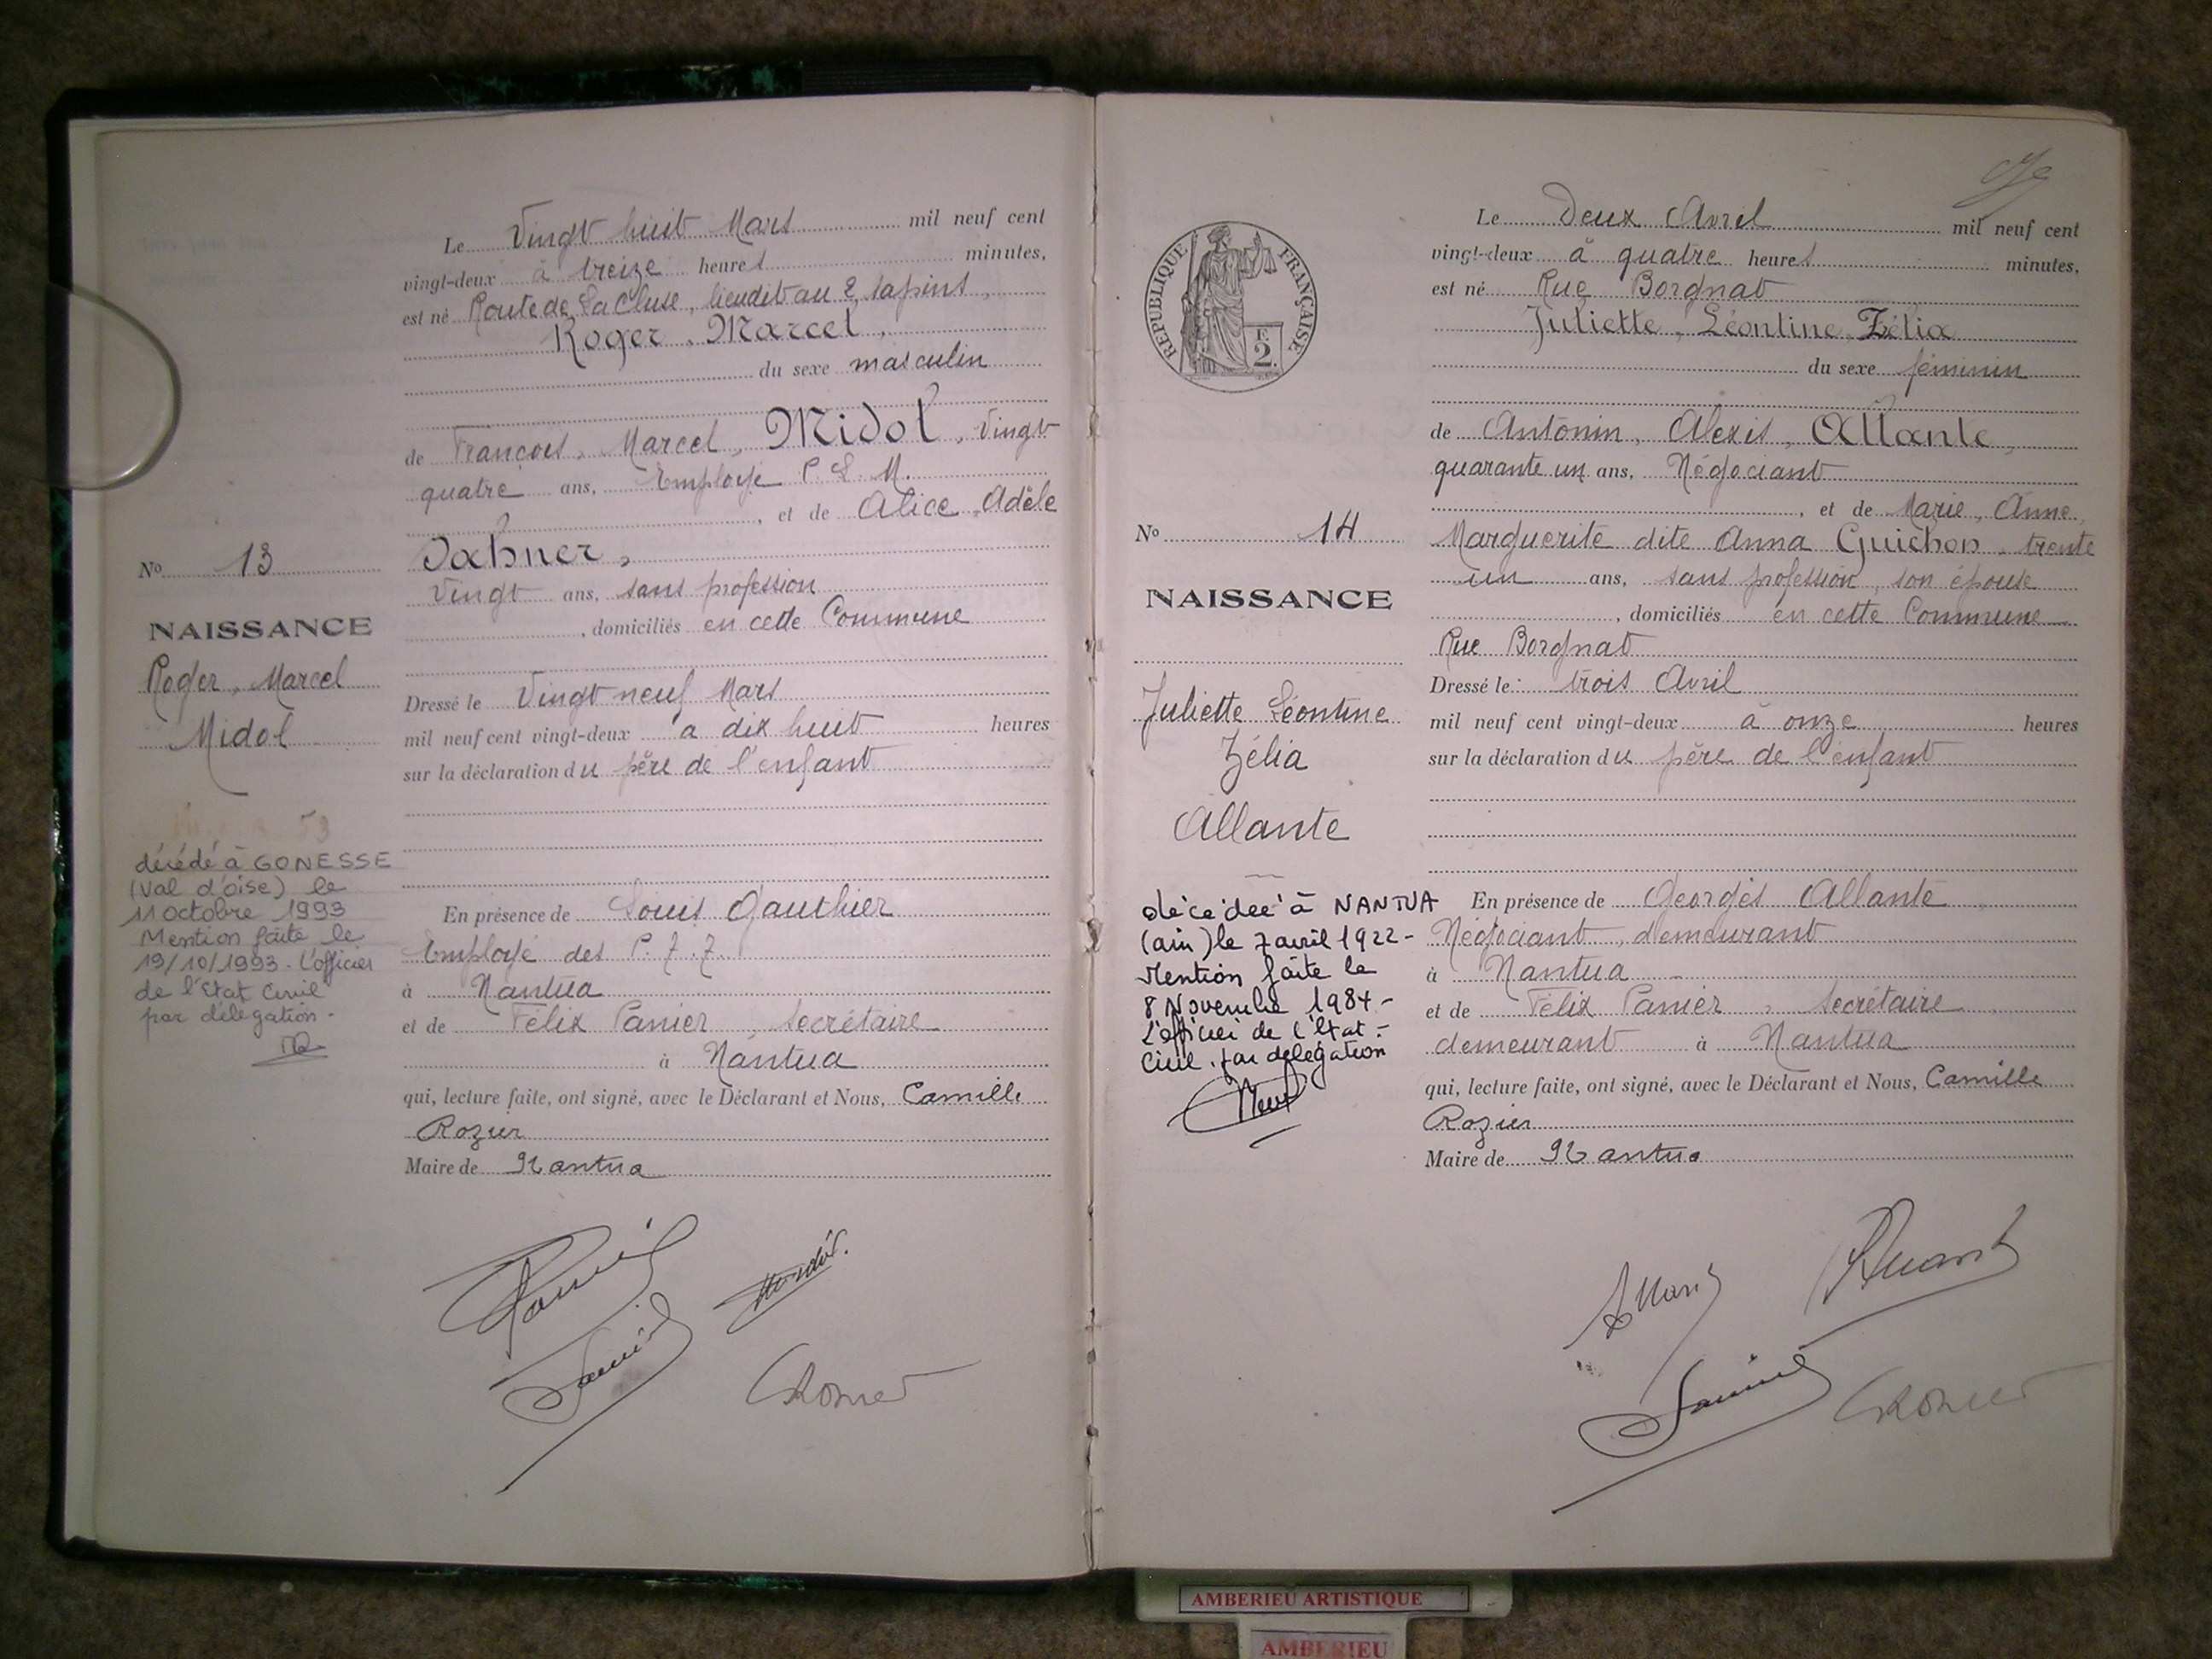 Le Vingt huit Mars mil neuf cent
vingt-deux à treize heures minutes,
est né Route de La Cluse, lieudit au 2 sapins,
Roger, Marcel,
du sexe masculin
de François, Marcel, Midol, Vingt
quatre ans, Employé P. L. M.
, et de Alice, Adèle
No 13
NAISSANCE
Roger, Marcel
Midol
décédé à GONESSE
(Val d'oise) le
11 octobre 1993
Mention faite le
19/10/1993 - L'officier
de l'Etat Civil
par délégation -
Vingt ans, sans profession
, domiciliés en cette Commune
Dressé le Vingt neuf Mars
mil neuf cent vingt-deux à dix huit heures
sur la déclaration du père de l'enfant
En présence de Louis Gauthier
Employé des P. T. T.
à Nantua
et de Félix Panier, Secrétaire
à Nantua
qui, lecture faite, ont signé, avec le Déclarant et Nous, Camille
Rozier
Maire de Nantua
RÉPUBLIQUE FRANÇAISE
2 F.
No 14
NAISSANCE
Juliette Léontine
Zélia
Allante
décédée à NANTUA
(ain) le 7 avril 1922 -
Mention faite le
8 Novembre 1984 -
L'officier de l'Etat -
Civil. par délégation
Le Deux Avril mil neuf cent
vingt-deux à quatre heures minutes,
est né Rue Borgnat
Juliette, Léontine, Zélia
du sexe féminin
de Antonin, Alexis, Allante,
quarante un ans, Négociant
, et de Marie, Anne,
Marguerite dite Anna Guichon, trente
un ans, sans profession, son épouse
, domiciliés en cette Commune
Rue Borgnat
Dressé le trois Avril
mil neuf cent vingt-deux à onze heures
sur la déclaration du père de l'enfant
En présence de Georges Allante
Négociant, demeurant
à Nantua
et de Félix Panier, Secrétaire
demeurant à Nantua
qui, lecture faite, ont signé, avec le Déclarant et Nous, Camille
Rozier
Maire de Nantua
AMBERIEU ARTISTIQUE
AMBERIEU